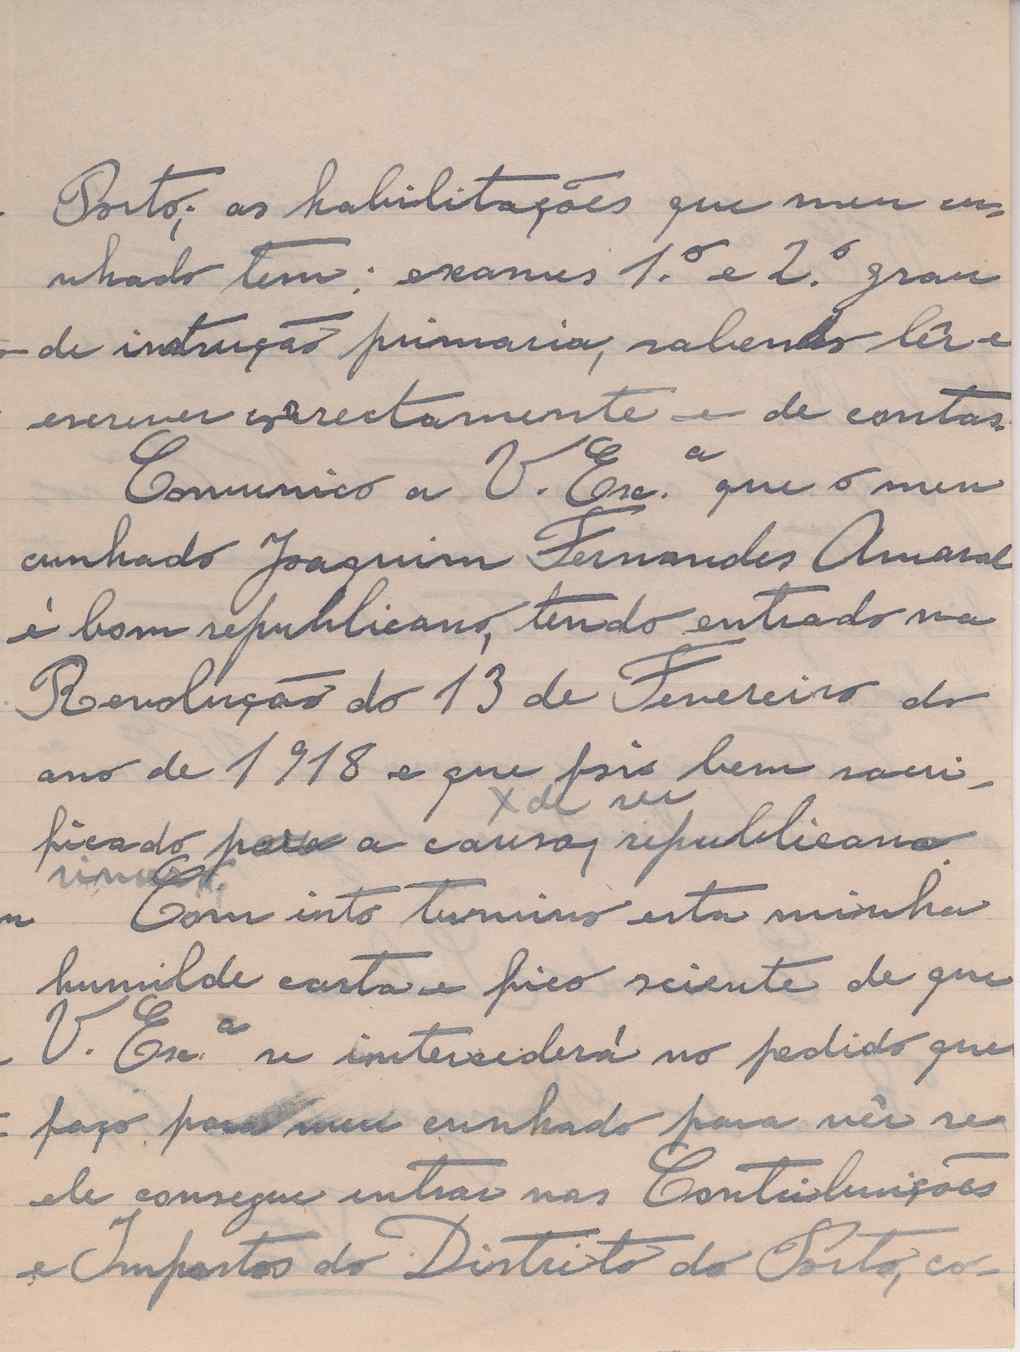 Porto; as habilitações que meu cu-
nhado tem: exames 1.º e 2.º grau
de instrução primaria, sabendo lêr e
escrever correctamente e de contas.
Comunico a V. Ex.ª que o meu
cunhado Joaquim Fernandes Amaral
é bom republicano, tendo entrado na
Revolução do 13 de Fevereiro do
ano de 1918 e que foi bem sacri-
ficado para a causa, republicana.
X de ser
Com isto termino esta minha
humilde carta e fico sciente de que
V. Ex.ª se intercederá no pedido que
faço para meu cunhado para vêr se
ele consegue entrar nas Contribuições
e Impostos do Distrito do Porto, co-